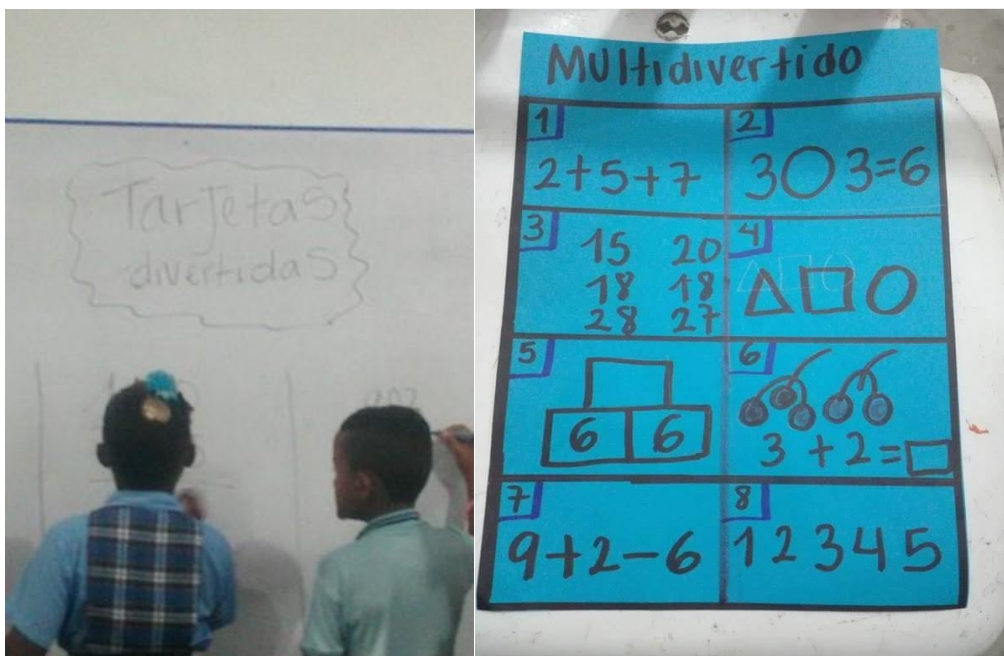 Tarjetas
divertidas
Multidivertido
1
2+5+7
2
3○3=6
3
15 20
18 18
28 27
4
5
6 6
6
3+2=□
7
9+2-6
8
1 2 3 4 5